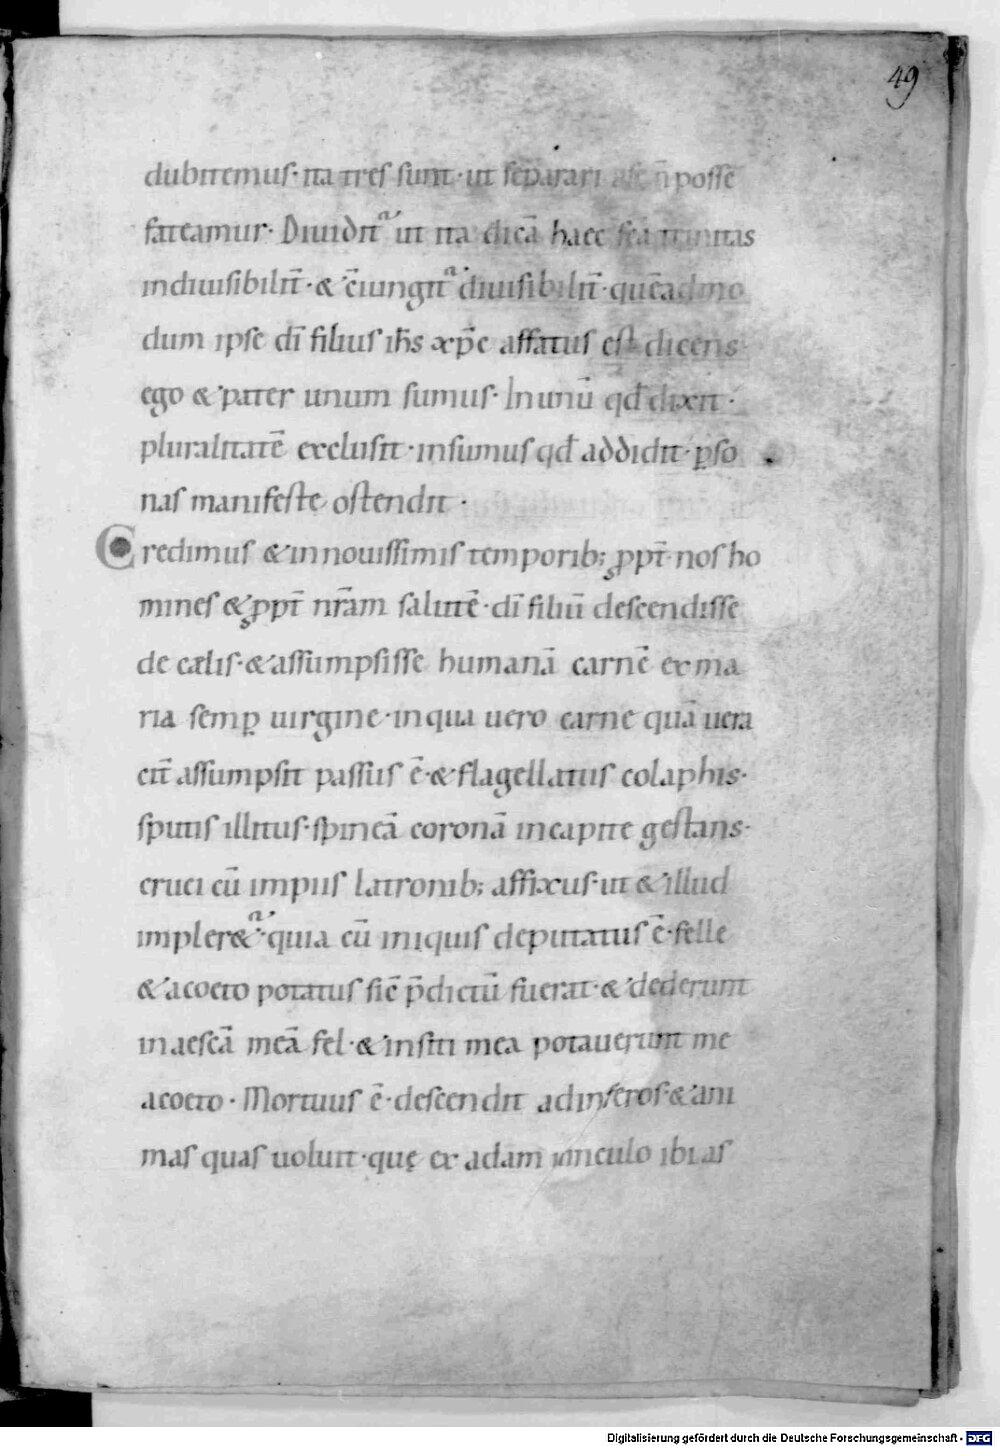 49
dubitemus· ita tres sunt· ut separari a se n̄ posse
fateamur· Diuidit᷑ ut ita dicā haec sc̄a trinitas
indiuisibilit̄· & c̄iungit᷑ diuisibilit̄· quēadmo
dum ipse dī filius ih̄s xp̄c affatus est dicens
ego & pater unum sumus· In unū qđ dixit·
pluralitatē exclusit· in sumus qđ addidit· ꝑso
nas manifeste ostendit·
Credimus & in nouissimis temporib; ꝓpt̄ nos ho
mines & ꝓpt̄ nr̄am salutē· dī filiū descendisse
de cælis· & assumpsisse humanā carnē ex ma
ria semꝑ uirgine· in qua uero carne quā uera
cit̄ assumpsit passus ē· & flagellatus colaphis·
sputis illitus· spineā coronā in capite gestans·
cruci cū impiis latronib; affixus· ut & illud
impler&᷑· quia cū iniquis deputatus ē· felle
& acoeto potatus sic̄ p̄dictū fuerat· & dederunt
in aescā meā fel· & in siti mea potauerunt me
acoeto· Mortuus ē· descendit ad inferos· & ani
mas quas uoluit· quę ex adam uinculo ibi as
Digitalisierung gefördert durch die Deutsche Forschungsgemeinschaft - DFG